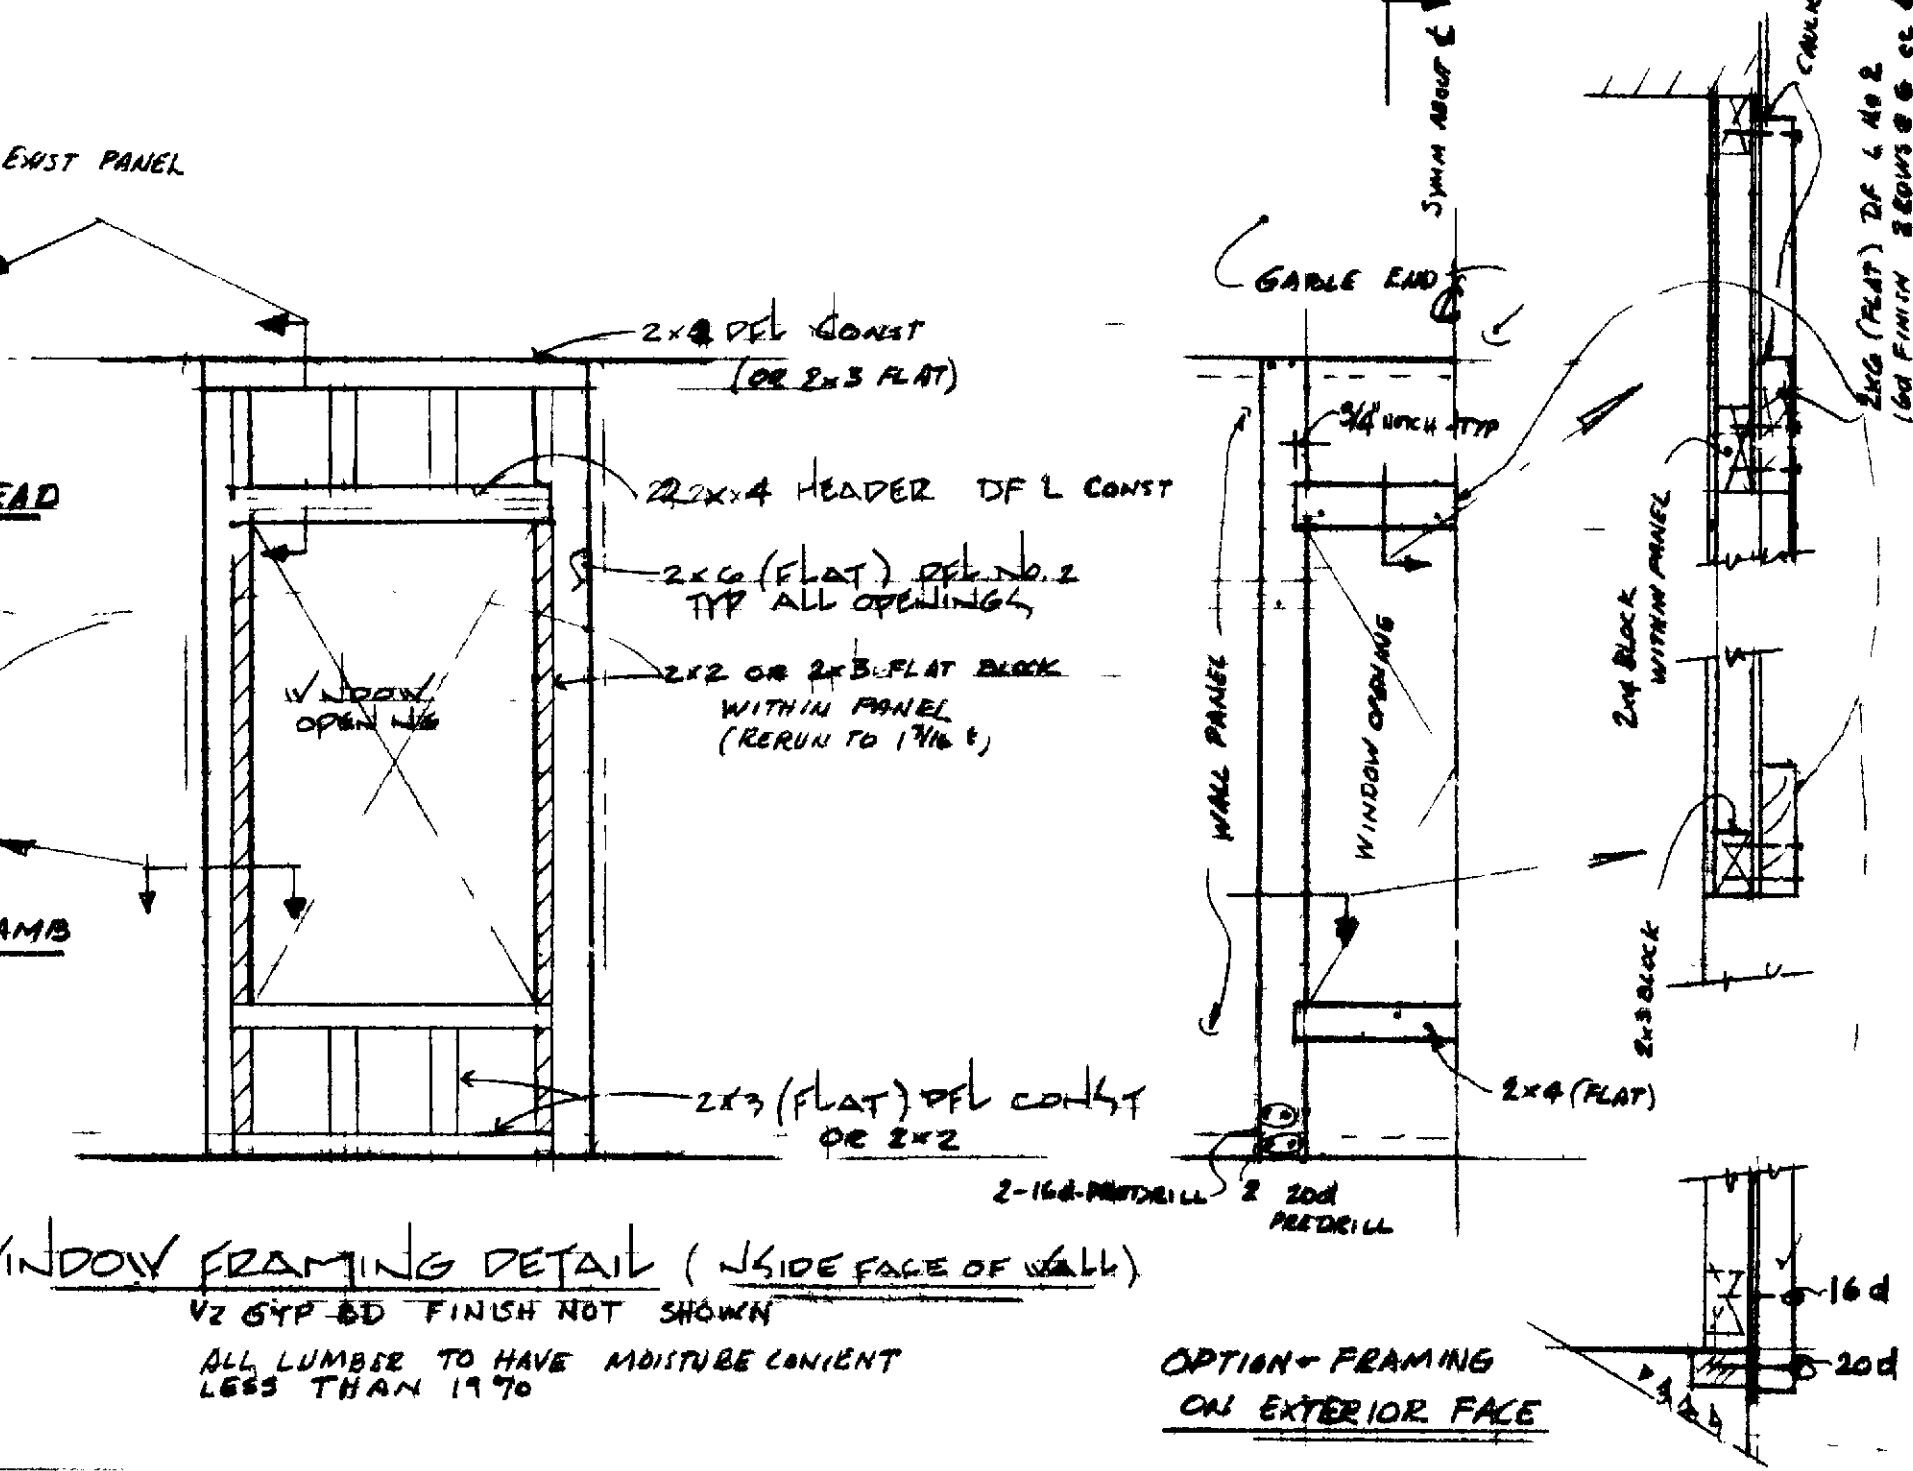 EXIST PANEL
2x4 DFL CONST
(OR 2x3 FLAT)
EAD
2x4 HEADER DF L CONST
2x6 (FLAT) DFL NO. 2
TYP ALL OPENINGS
2x2 OR 2x3 FLAT BLOCK
WITHIN PANEL
(RERUN TO 1 3/16 t)
WINDOW
OPENING
AMB
2x3 (FLAT) DFL CONST
OR 2x2
INDOW FRAMING DETAIL (INSIDE FACE OF WALL)
1/2 GYP BD FINISH NOT SHOWN
ALL LUMBER TO HAVE MOISTURE CONTENT
LESS THAN 19%
SYMM ABOUT ℄
GABLE END
3/4" NOTCH TYP
WALL PANEL
WINDOW OPENING
2x4 (FLAT)
2-16d PREDRILL
2 20d
PREDRILL
OPTION - FRAMING
ON EXTERIOR FACE
CAULK
2x6 (FLAT) DF L NO 2
16d FINISH 2 ROWS @ 6
2x4 BLOCK
WITHIN PANEL
2x3 BLOCK
16d
20d